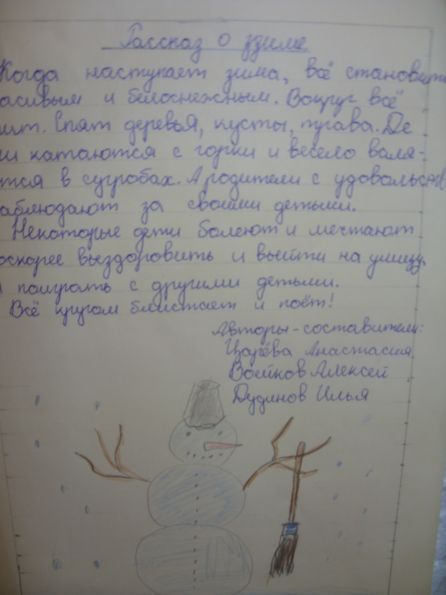 Рассказ о зиме.
Когда наступает зима, всё становить
асивым и белоснежным. Вокруг всё
ит. Спят деревья, кусты, трава. Де
и катаются с горки и весело валя-
тся в сугробах. А родители с удовольств
аблюдают за своими детьми.
Некоторые дети болеют и мечтают
оскорее выздоровить и выйти на улицу
и поиграть с другими детьми.
Всё кругом блистает и поёт!
Авторы-составители:
Царёва Анастасия,
Войков Алексей
Дудинов Илья